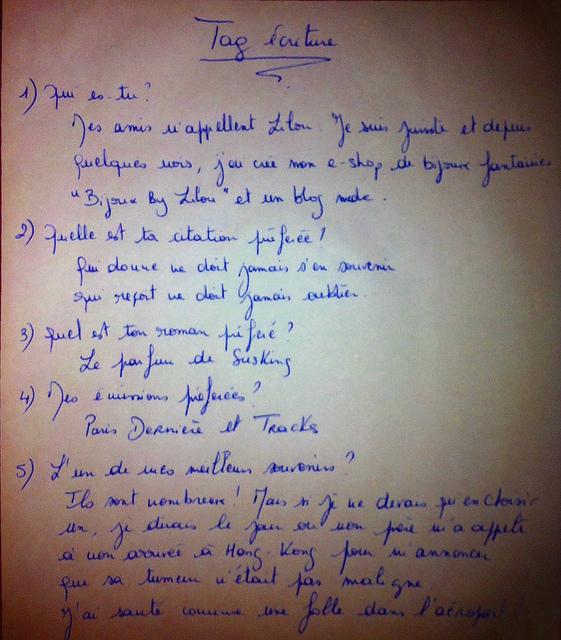 Tag écriture
1) Qui es-tu?
Mes amis m'appellent Lilou. Je suis juriste et depuis
quelques mois, j'ai créé mon e-shop de bijoux fantaisies
"Bijoux By Lilou" et un blog mode.
2) Quelle est ta citation préférée?
Qui donne ne doit jamais s'en souvenir
qui reçoit ne doit jamais oublier.
3) Quel est ton roman préféré?
Le parfum de Susking
4) Mes émissions préférées?
Paris Dernière et Tracks
5) L'un de mes meilleurs souvenirs?
Ils sont nombreux! Mais si je ne devais qu'en choisir
un, je dirais le jour où mon père m'a appelé
à mon arrivée à Hong-Kong pour m'annoncer
que sa tumeur n'était pas maligne.
J'ai sauté comme une folle dans l'aéroport!